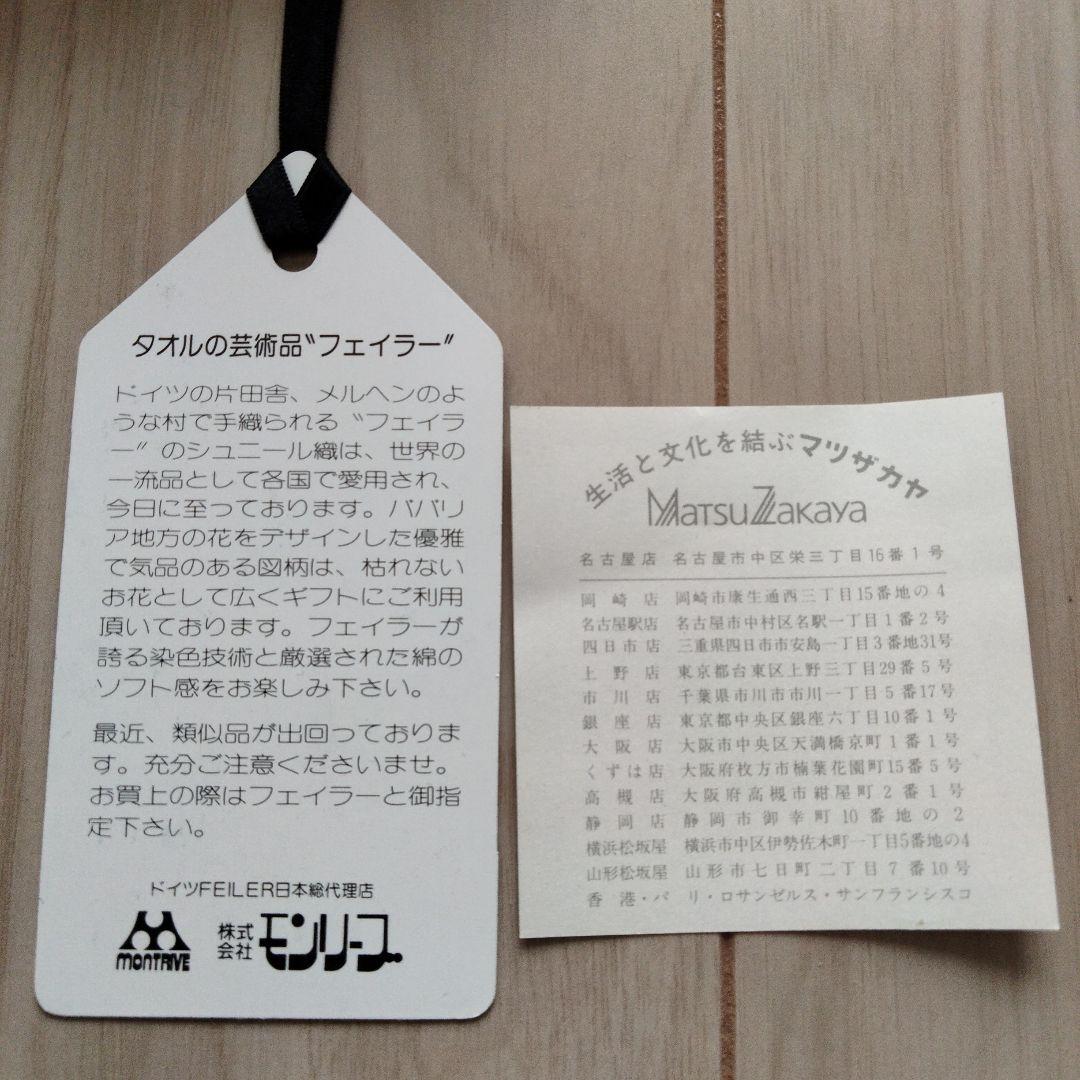 タオルの芸術品〝フェイラー〟
ドイツの片田舎、メルヘンのよ
うな村で手織られる〝フェイラ
ー〟のシュニール織は、世界の
一流品として各国で愛用され、
今日に至っております。ババリ
ア地方の花をデザインした優雅
で気品のある図柄は、枯れない
お花として広くギフトにご利用
頂いております。フェイラーが
誇る染色技術と厳選された綿の
ソフト感をお楽しみ下さい。
最近、類似品が出回っておりま
す。充分ご注意くださいませ。
お買上の際はフェイラーと御指
定下さい。
ドイツFEILER日本総代理店
MONTRIVE
株式会社 モンリーブ
生活と文化を結ぶマツザカヤ
MatsuZakaya
名古屋店 名古屋市中区栄三丁目16番1号
岡崎店 岡崎市康生通西三丁目15番地の4
名古屋駅店 名古屋市中村区名駅一丁目1番2号
四日市店 三重県四日市市安島一丁目3番地31号
上野店 東京都台東区上野三丁目29番5号
市川店 千葉県市川市市川一丁目5番17号
銀座店 東京都中央区銀座六丁目10番1号
大阪店 大阪市中央区天満橋京町1番1号
くずは店 大阪府枚方市楠葉花園町15番5号
高槻店 大阪府高槻市紺屋町2番1号
静岡店 静岡市御幸町10番地の2
横浜松坂屋 横浜市中区伊勢佐木町一丁目5番地の4
山形松坂屋 山形市七日町二丁目7番10号
香港・パリ・ロサンゼルス・サンフランシスコ